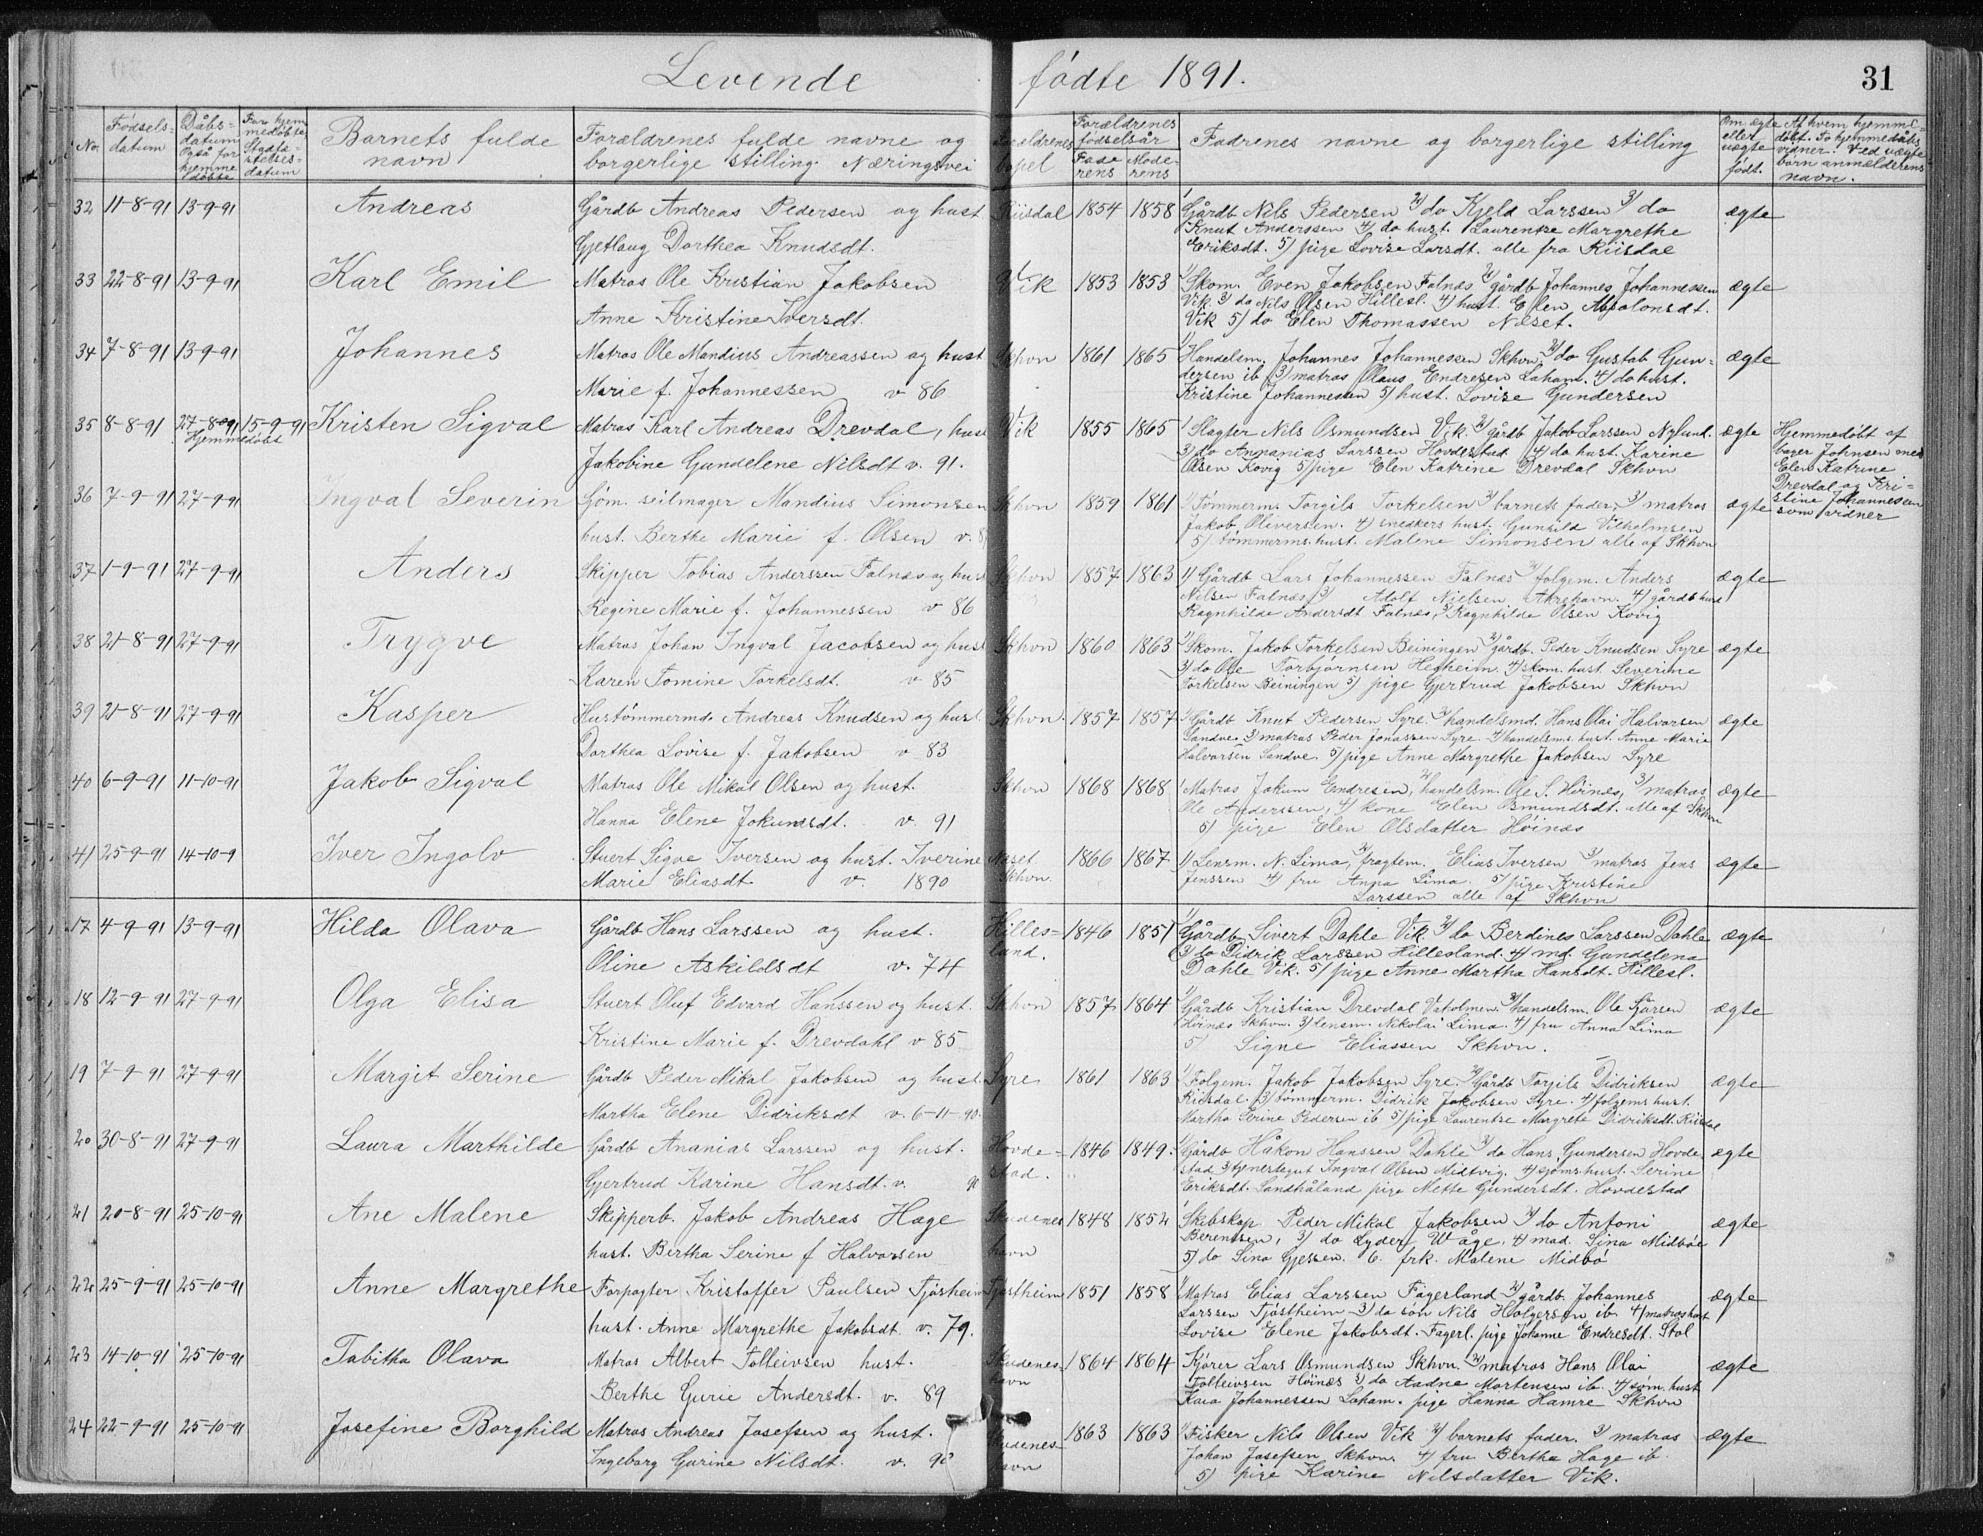 Levende fødte 1891.
31
No.
Fødsels-datum
Dåbs-datum Også for hjemme døbte
For hjem medøbte Stadfæ-stelses-datum
Barnets fulde navn
Forældrenes fulde navne og borgerlige stilling. Næringsvei
Forældrenes bopel
Forældrenes fødselsår
Fade rens
Mode-rens
Fadrenes navne og borgerlige stilling
Om ægte eller uægte født.
Af hvem hjemme-døbt. To hjemmedåbs vidner. Ved uægte børn anmælderens navn.
32 11-8-91 13-9-91 Andreas Gårdb Andreas Pedersen og hust Riisdal 1854 1858 1/ Gårdb Nils Pedersen 2/ do Kjeld Larssen 3/ do ægte
Gjetlaug Dorthea Knudsdt. Knut Anderssen 4/ do hust. Laurentze Margrethe
Eriksdt. 5/ pige Lovise Larsdt. alle fra Riisdal
33 22-8-91 13-9-91 Karl Emil Matros Ole Kristian Jakobsen Vik 1853 1853 1/ Skom. Even Jakobsen Falnæs 2/ gårdb Johannes Johannessen ægte
Anne Kristine Iversdt. Vik 3/ do Nils Olsen Hillesl. 4/ hust. Elen Absalonsdt.
Vik 5/ do Elen Thomassen Næset.
34 7-8-91 13-9-91 Johannes Matros Ole Mandius Andreassen og hust Skhvn 1861 1865 1/ Handelsm. Johannes Johannessen Skhvn. 2/ do Gustab Gun- ægte
Marie f. Johannessen v 86 dersen ib 3/ matros Olaus Endresen Laham. 4/ do hust.
Kristine Johannessen 5/ hust. Lovise Gundersen
35 8-8-91 27-8-91 Hjemmedøbt 15-9-91 Kristen Sigval Matros Karl Andreas Drevdal, hust Vik 1855 1865 1/ Slagter Nils Osmundsen Vik. 2/ gårdb Jakob Larssen Nylund. ægte Hjemmedøbt af
Jakobine Gundelene Nilsdt v. 91. 3/ do Annanias Larssen Hovdestad 4/ do hust. Karine bager Johnsen med
Olsen Kovig 5/ pige Elen Katrine Drevdal Skhvn Elen Katrine
Drevdal og Kri-
stine Johannessen
som vidner
36 7-9-91 27-9-91 Ingval Severin Gom. seilmager Mandius Simonsen Skhvn 1859 1861 1/ Tømmerm. Torgils Torkelsen 2/ barnets fader, 3/ matros ægte
hust. Berthe Marie f. Olsen v. Jakob Oliversen. 4/ snedkers hust. Gunhild Vilhelmsen
5/ tømmerms. hust. Malene Simonsen alle af Skhvn
37 1-9-91 27-9-91 Anders Skipper Tobias Anderssen Falnæs og hust Skhvn 1857 1863 1/ Gårdb Lars Johannessen Falnæs 2/ folgem. Anders ægte
Regine Marie f. Johannessen v 86 Nilsen Falnæs, 3/ Adolf Nielsen Akrehavn. 4/ gårdb hust
Ragnhilde Andersdt Falnæs, 5/ Ragnhilde Olsen Kovig
38 21-8-91 27-9-91 Trygve Matros Johan Ingval Jacobsen og hust Skhvn 1860 1863 1/ Skom. Jakob Torkelsen Beiningen 2/ gårdb. Peder Knudsen Syre ægte
Karen Tomine Torkelsdt. v 85 3/ do Ole Torbjørnsen Hegheim. 4/ skom. hust. Severine
Torkelsen Beiningen 5/ pige Gjertrud Jakobsen Skhvn
39 21-8-91 27-9-91 Kasper Hustømmermd. Andreas Knudsen og hust Skhvn. 1857 1857 1/ Gårdb Knut Pedersen Syre. 2/ handelsmd. Hans Olai Halvorsen ægte
Dorthea Lovise f. Jakobsen v 83 Sandve. 3/ matros Peder Jonassen Syre. 4/ handelsm.s hust. Anne Marie
Halvorsen Sandve. 5/ pige Anne Margrethe Jakobsen Syre
40 6-9-91 11-10-91 Jakob Sigval Matros Ole Mikal Olsen og hust. Skhvn 1868 1868 1/ Matros Jakum Endresen, 2/ handelsm. Ole S. Høinæs, 3/ matros ægte
Hanna Elene Jokumsdt. v. 91 Ole Anderssen, 4/ kone Elen Osmundsdt. alle af Skhvn
5/ pige Elen Olsdatter Høinæs
41 25-9-91 14-10-9 Iver Ingolv Stuert Sigve Iversen og hust. Iverine Næset 1866 1867 1/ Lensm. N. Lima, 2/ fragtem. Elias Iversen 3/ matros Jens ægte
Marie Eliasdt. v. 1890 Skhvn. Jenssen 4/ fru Anna Lima. 5/ pige Kristine
Larssen alle af Skhvn
17 4-9-91 13-9-91 Hilda Olava Gårdb Hans Larssen og hust. Hilles- 1846 1851 1/ Gårdb Sivert Dahle Vik. 2/ do Berdines Larssen Dahle ægte
Oline Askildsdt v. 74 land. 3/ do Didrik Larssen Hillesland. 4/ md. Gundelena
Dahle Vik. 5/ pige Anne Martha Hansdt. Hillesl.
18 12-9-91 27-9-91 Olga Elisa Stuert Oluf Edvard Hanssen og hust. Skhvn 1857 1864 1/ Gårdb Kristian Drevdal Vaholmen. 2/ handelsm. Ole Sørsen ægte
Kristine Marie f. Drevdahl v 85 Høinæs Skhvn. 3/ lensm. Nikolai Lima. 4/ fru Anna Lima
5/ Signe Eliassen Skhvn.
19 7-9-91 27-9-91 Margit Serine Gårdb Peder Mikal Jakobsen og hust. Syre 1861 1863 1/ Folgem. Jakob Jakobsen Syre. 2/ Gårdb Torjils Didriksen ægte
Martha Elene Didriksdt v. 6-11-90. Riisdal. 3/ tømmerm. Didrik Jakobsen Syre. 4/ folgems hust.
Martha Serine Pedersen ib 5/ pige Laurentze Margrete Didriksdt. Riisdal
20 30-8-91 27-9-91 Laura Marthilde Gårdb Ananias Larssen og hust. Hovde- 1846 1849. 1/ Gårdb Håkon Hanssen Dahle 2/ do Hans Gundersen Hovde ægte
Gjertrud Karine Hansdt. v. stad. stad 3/ tjenstegut Ingval Olsen Midtvig. 4/ sjøms hust. Serine
Eriksdt. Sandhåland pige Mette Gundersdt. Hovdestad
21 20-8-91 25-10-91 Ane Malene Skipperb. Jakob Andreas Hage Skudenes 1848 1852 1/ Skibskap Peder Mikal Jakobsen 2/ do Antoni ægte
hust. Bertha Serine f Halvorsen havn Berentsen, 3/ do Lyder Wåge, 4/ mad. Sina Midbøe
5/ do Sina Gjessen. 6. frk. Malene Midbø
22 25-9-91 25-10-91 Anne Margrethe Forpagter Kristoffer Paulsen Tjøsheim Tjøstheim 1851 1858 1/ Matros Elias Larssen Fagerland 2/ gårdb. Johannes ægte
hust. Anne Margrethe Jakobsdt v. 79. Larssen Tjøstheim 3/ do søn Nils Holgersen ib. 4/ matros hust
Lovise Elene Jakobsdt. Fagerl. pige Johanne Endresdt. Stol
23 14-10-91 25-10-91 Tabitha Olava Matros Albert Tolleivsen hust. Skudenes- 1864 1864 1/ Kjører Lars Osmundsen Skhvn. 2/ matros Hans Olai ægte
Berthe Gurie Andersdt. v. 89 havn Tolleivsen Høinæs 3/ do Aadne Mortensen ib. 4/ søm. hust
Kaia Johannessen Laham. pige Hanna Hamre Skhvn
24 22-9-91 25-10-91 Josefine Borghild Matros Andreas Josefsen og hust. Skudenes- 1863 1863 1/ Fisker Nils Olsen Vik 2/ barnets fader. 3/ matros ægte
Ingeborg Gurine Nilsdt. v. 90 havn Johan Josefsen Skhvn. 4/ fru Bertha Hage ib.
5/ pige Karine Nilsdatter Vik.